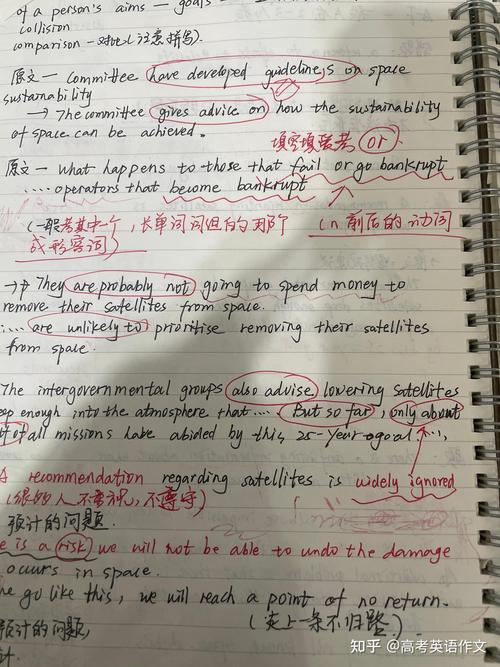 of a person's aims — goals
collision
comparison — 对比(注意拼写).
原文 — committee have developed guidelines on space
sustainability
→ The committee gives advice on how the sustainability
of space can be achieved.
填空填 or
原文 — what happens to those that fail or go bankrupt
.... operators that become bankrupt
(一般考其中一个, 长单词 (n 前后的动词
成形容词)
→ They are probably not going to spend money to
remove their satellites from space.
.... are unlikely to prioritise removing their satellites
from space.
The intergovernmental groups also advise lowering satellites
enough into the atmosphere that .... But so far, only about
of all missions have abided by this, 25-year goal ....
recommendation regarding satellites is widely ignored
(很多人不重视, 不遵守)
预计的问题.
is a risk we will not be able to undo the damage
occurs in space.
go like this, we will reach a point of no return.
预计的问题, (走上一条不归路.)
计.
知乎 @高考英语作文